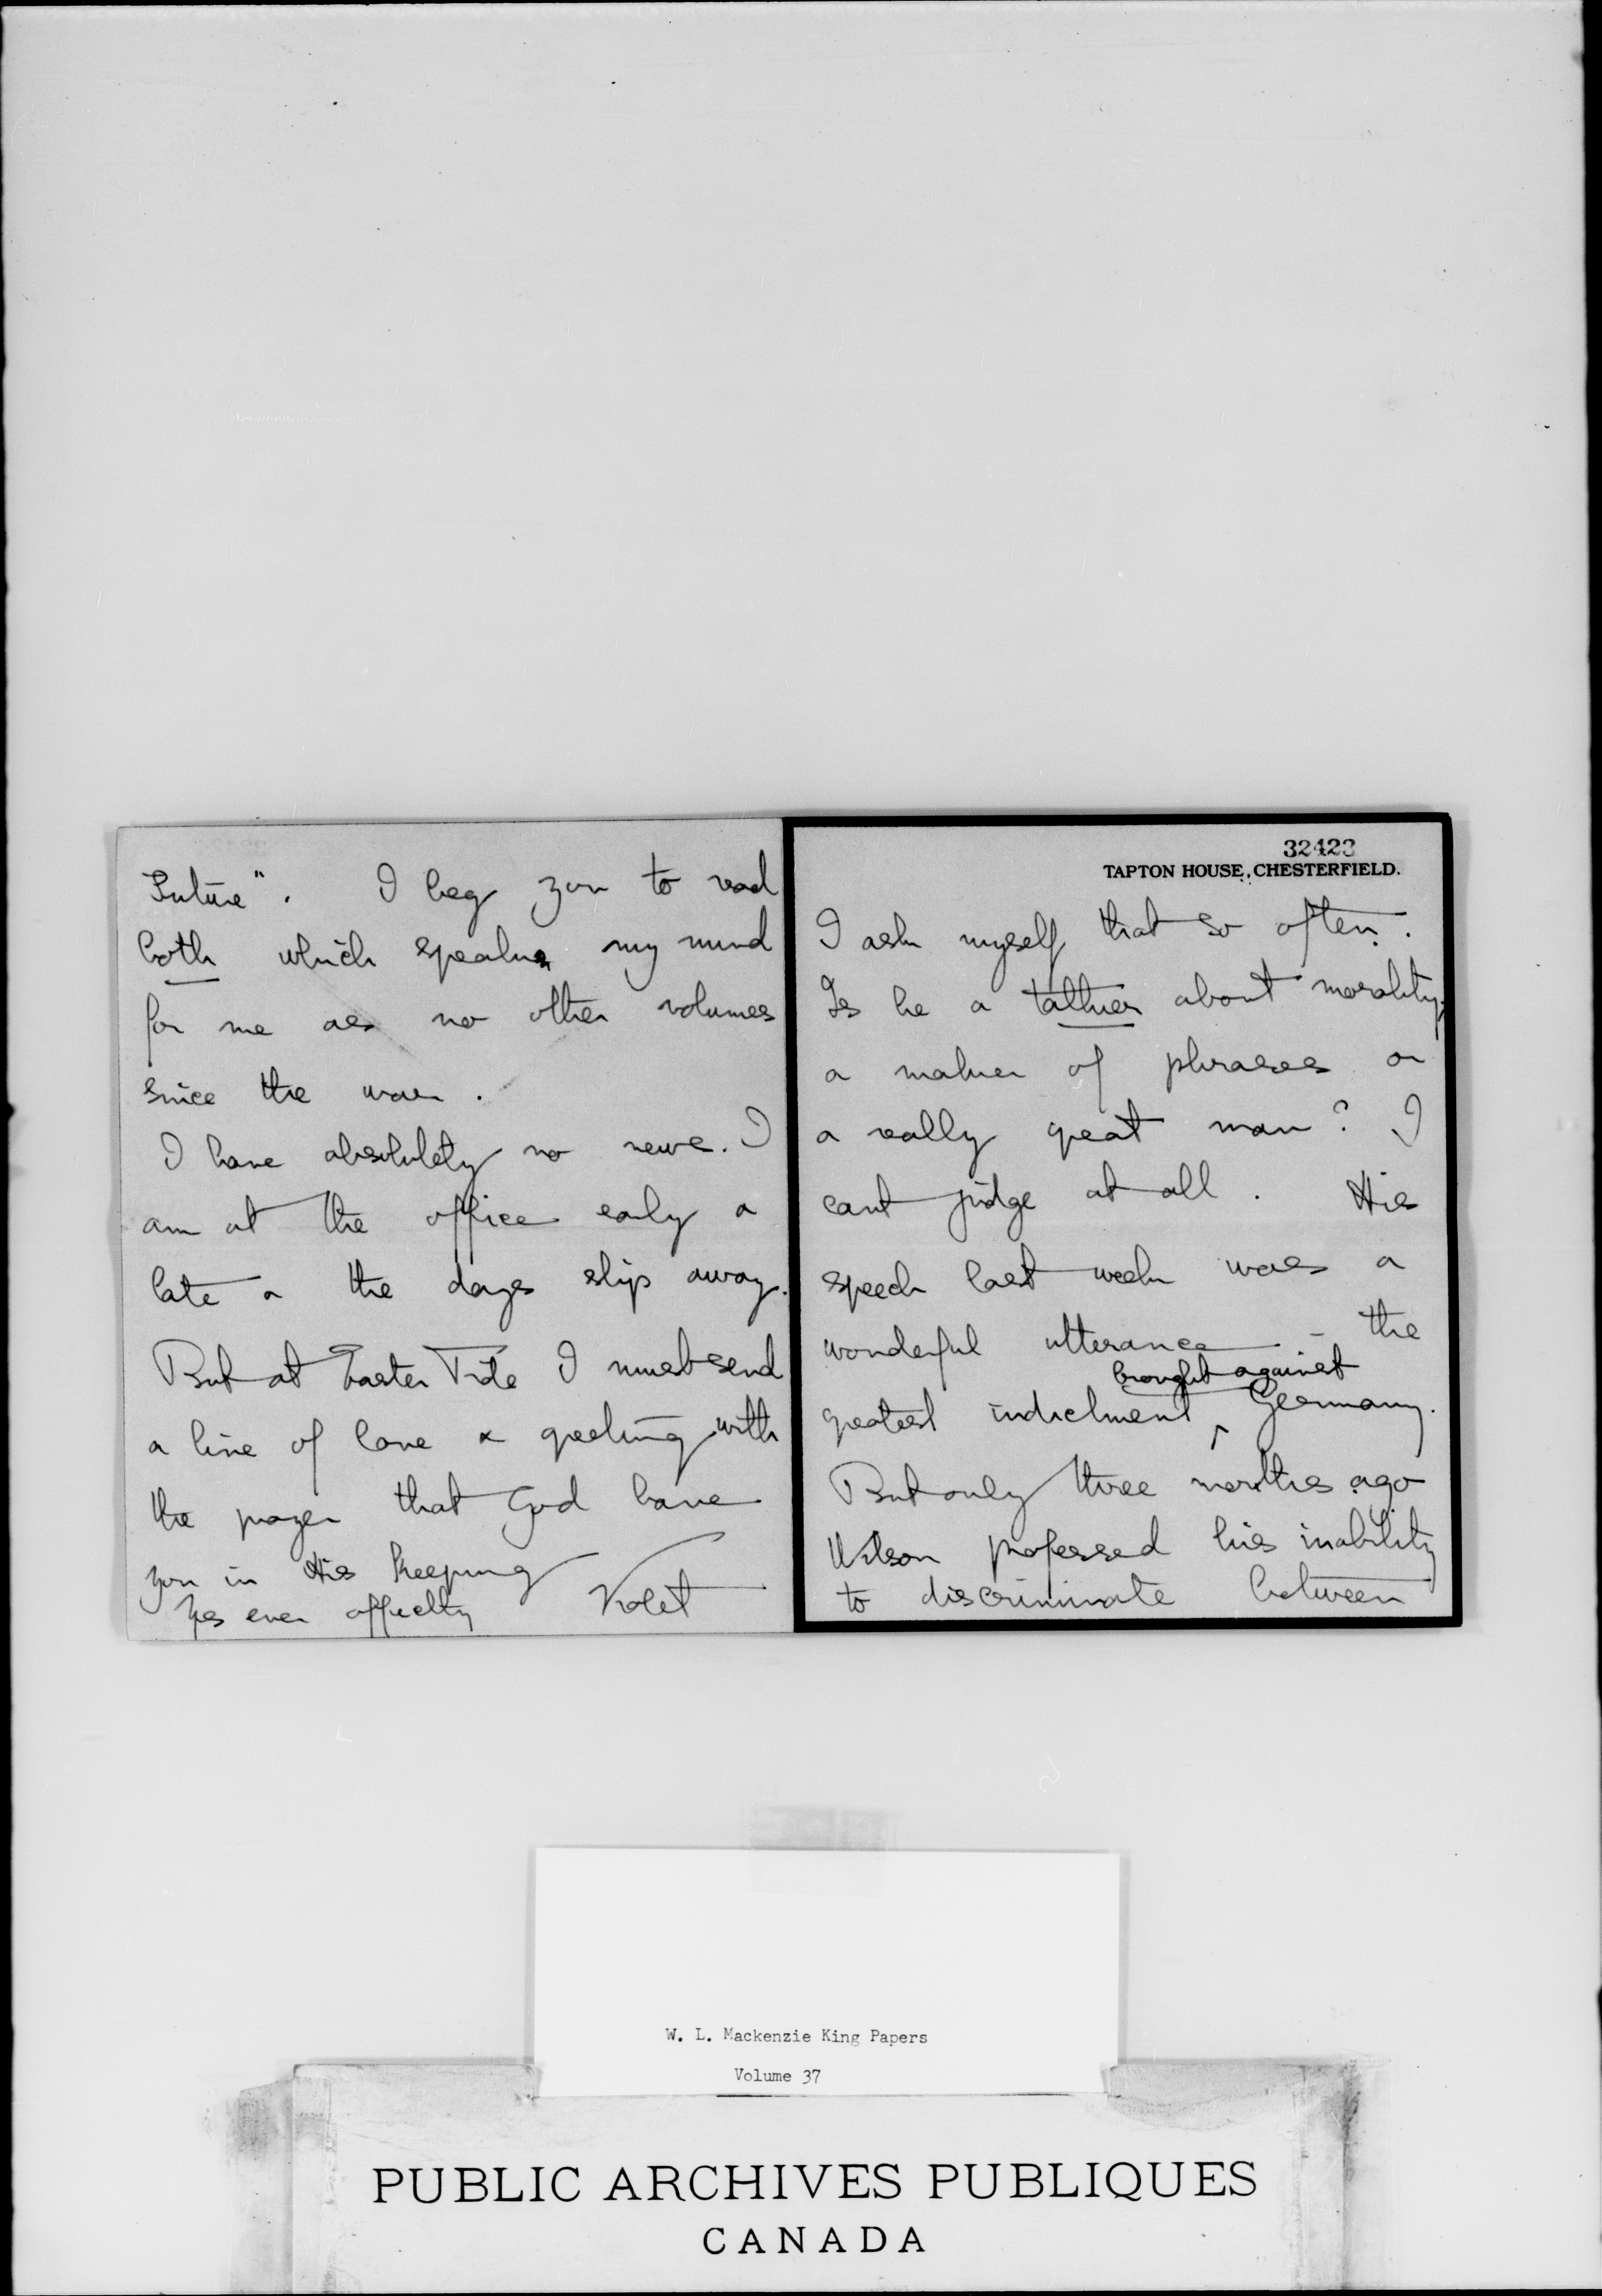 Future". I beg you to read
both which speaks my mind
for me as no other volumes
since the war.
I have absolutely no news. I
am at the office early &
late & the days slip away.
But at Easter Tide I must send
a line of love & greeting with
the prayer that God have
you in His keeping
Yrs ever affectly Violet
32423
TAPTON HOUSE, CHESTERFIELD.
I ask myself that so often.
Is he a talker about morality,
a maker of phrases or
a really great man? I
cant judge at all. His
speech last week was a
wonderful utterance - the
brought against
greatest indictment Germany.
But only three months ago
Wilson professed his inability
to discriminate between
W. L. Mackenzie King Papers
Volume 37
PUBLIC ARCHIVES PUBLIQUES
CANADA